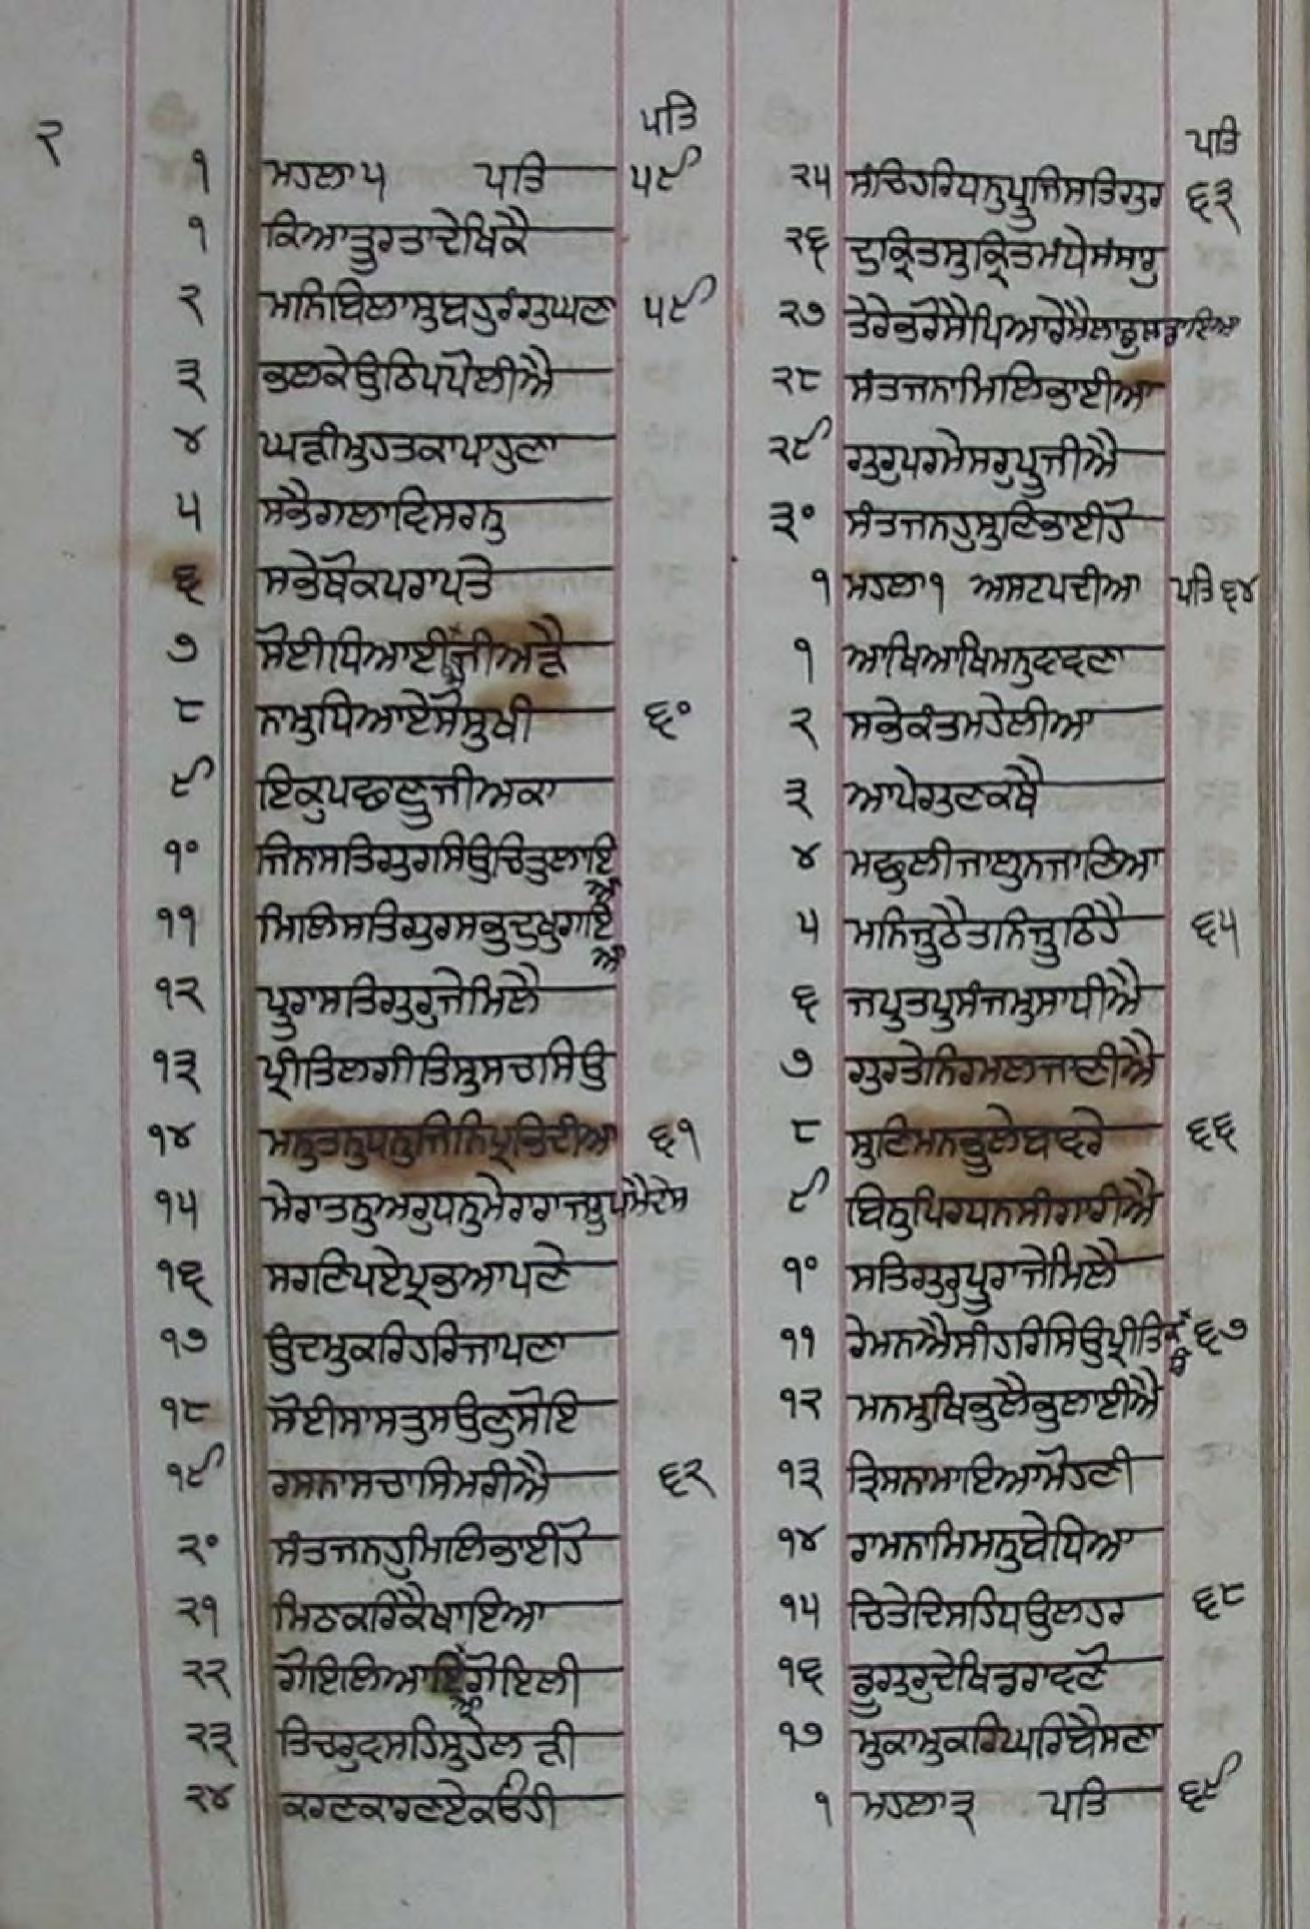 ੨
ਪਤਿ
੧ ਮਹਲਾ ੫ ਪਤਿ ੫੯
੧ ਕਿਆਤੂਰਤਾਦੇਖਿਕੈ
੨ ਮਨਿਬਿਲਾਸੁਬਹੁਰੰਗੁਘਣਾ ੫੯
੩ ਭਲਕੇਉਠਿਪਪੋਲੀਐ
੪ ਘੜੀਮੁਹਤਕਾਪਾਹੁਣਾ
੫ ਸਭੈਗਲਾਵਿਸਰਨੁ
੬ ਸਭੇਥੋਕਪਰਾਪਤੇ
੭ ਸੋਈਧਿਆਈਐਜੀਅੜੈ
੮ ਨਾਮੁਧਿਆਏਸੋਸੁਖੀ ੬੦
੯ ਇਕੁਪਛਾਣੂਜੀਅਕਾ
੧੦ ਜਿਨਾਸਤਿਗੁਰਸਿਉਚਿਤੁਲਾਇਆ
੧੧ ਮਿਲਿਸਤਿਗੁਰਸਭੁਦੁਖੁਗਇਆ
੧੨ ਪੂਰਾਸਤਿਗੁਰੁਜੇਮਿਲੈ
੧੩ ਪ੍ਰੀਤਿਲਗੀਤਿਸੁਸਚਸਿਉ
੧੪ ਮਨੁਤਨੁਧਨੁਜਿਨਿਪ੍ਰਭਿਦੀਆ ੬੧
੧੫ ਮੇਰਾਤਨੁਅਰੁਧਨੁਮੇਰਾਰਾਜਰੂਪਮੈਦੇਸ
੧੬ ਸਰਣਿਪਏਪ੍ਰਭਆਪਣੇ
੧੭ ਉਦਮੁਕਰਿਹਰਿਜਾਪਣਾ
੧੮ ਸੋਈਸਾਸਤੁਸਉਣੁਸੋਇ
੧੯ ਰਸਨਾਸਚਾਸਿਮਰੀਐ ੬੨
੨੦ ਸੰਤਜਨਹੁਮਿਲਿਭਾਈਹੋ
੨੧ ਮਿਠਾਕਰਿਕੈਖਾਇਆ
੨੨ ਗੋਇਲਿਆਇਆਗੋਇਲੀ
੨੩ ਤਿਚਰੁਵਸਹਿਸੁਹੇਲੜੀ
੨੪ ਕਰਣਕਾਰਣਏਕਓਹੀ
ਪਤਿ
੨੫ ਸੰਚਿਹਰਿਧਨੁਪੂਜਿਸਤਿਗੁਰ ੬੩
੨੬ ਦੁਕ੍ਰਿਤਸੁਕ੍ਰਿਤਮੰਧੇਸੰਸਾਰੁ
੨੭ ਤੇਰੇਭਰੋਸੈਪਿਆਰੇਮੈਲਾਡੁਲਡਾਇਆ
੨੮ ਸੰਤਜਨਾਮਿਲਿਭਾਈਆ
੨੯ ਗੁਰੁਪਰਮੇਸਰੁਪੂਜੀਐ
੩੦ ਸੰਤਜਨਹੁਸੁਣਿਭਾਈਹੋ
੧ ਮਹਲਾ ੧ ਅਸਟਪਦੀਆ ਪਤਿ ੬੪
੧ ਆਖਿਆਖਿਮਨੁਵਾਵਣਾ
੨ ਸਭੇਕੰਤਮਹੇਲੀਆ
੩ ਆਪੇਗੁਣਕਥੈ
੪ ਮਛੁਲੀਜਾਲੁਨਜਾਣਿਆ
੫ ਮਨਿਜੂਠੈਤਨਿਜੂਠਿਹੈ ੬੫
੬ ਜਪੁਤਪੁਸੰਜਮੁਸਾਧੀਐ
੭ ਗੁਰਤੇਨਿਰਮਲਜਾਣੀਐ
੮ ਸੁਣਿਮਨਭੂਲੇਬਾਵਰੇ ੬੬
੯ ਬਿਨੁਪਿਰਧਨਸੀਗਾਰੀਐ
੧੦ ਸਤਿਗੁਰੁਪੂਰਾਜੇਮਿਲੈ
੧੧ ਰੇਮਨਐਸੀਹਰਿਸਿਉਪ੍ਰੀਤਿਕਰਿ ੬੭
੧੨ ਮਨਮੁਖਿਭੁਲੈਭੁਲਾਈਐ
੧੩ ਤ੍ਰਿਸਨਾਮਾਇਆਮੋਹਣੀ
੧੪ ਰਾਮਨਾਮਿਮਨੁਬੇਧਿਆ
੧੫ ਚਿਤੇਦਿਸਹਿਧਉਲਹਰ ੬੮
੧੬ ਡੂਗਰੁਦੇਖਿਡਰਾਵਣੋ
੧੭ ਮੁਕਾਮੁਕਰਿਘਰਿਬੈਸਣਾ
੧ ਮਹਲਾ ੩ ਪਤਿ ੬੯